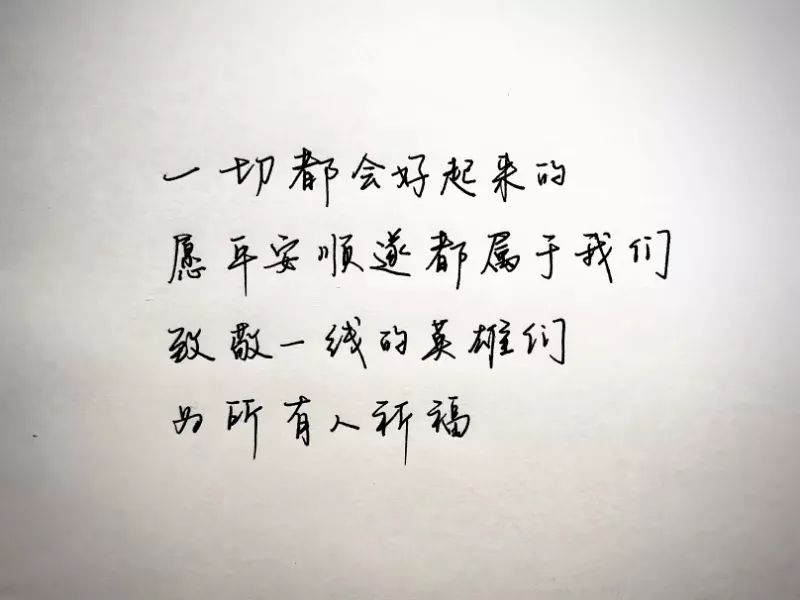 一切都会好起来的
愿平安顺遂都属于我们
致敬一线的英雄们
为所有人祈福